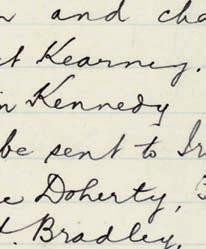 and cha
t Kearney.
n Kennedy
be sent to Ir
e Doherty,
t. Bradley,